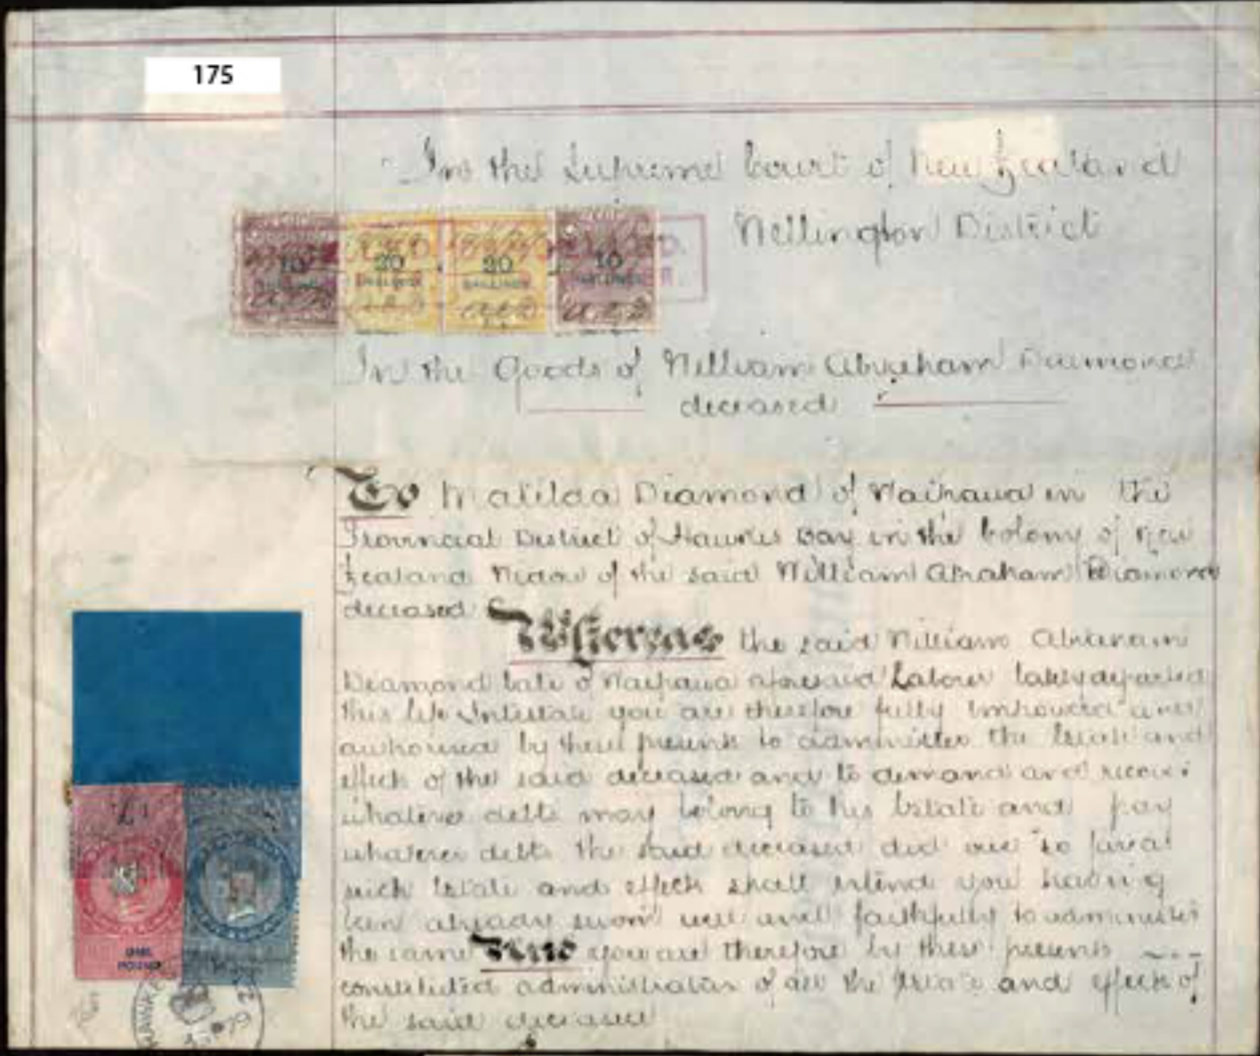 175
In the Supreme Court of New Zealand
Wellington District
10 20 20 10
SHILLINGS SHILLINGS
In the Goods of William Abraham Diamond
deceased
To Matilda Diamond of Waipawa in the
Provincial District of Hawkes Bay in the Colony of New
Zealand Widow of the said William Abraham Diamond
deceased
Whereas the said William Abraham
Diamond late of Waipawa aforesaid Labourer lately departed
this life Intestate you are therefore fully empowered and
authorised by these presents to administer the Estate and
effects of the said deceased and to demand and receive
whatever debts may belong to his Estate and pay
whatever debts the said deceased did owe so far as
such Estate and effects shall extend you having
been already sworn well and faithfully to administer
the same And you are therefore by these presents
constituted administratrix of all the Estate and effects of
the said deceased
£1
ONE
POUND